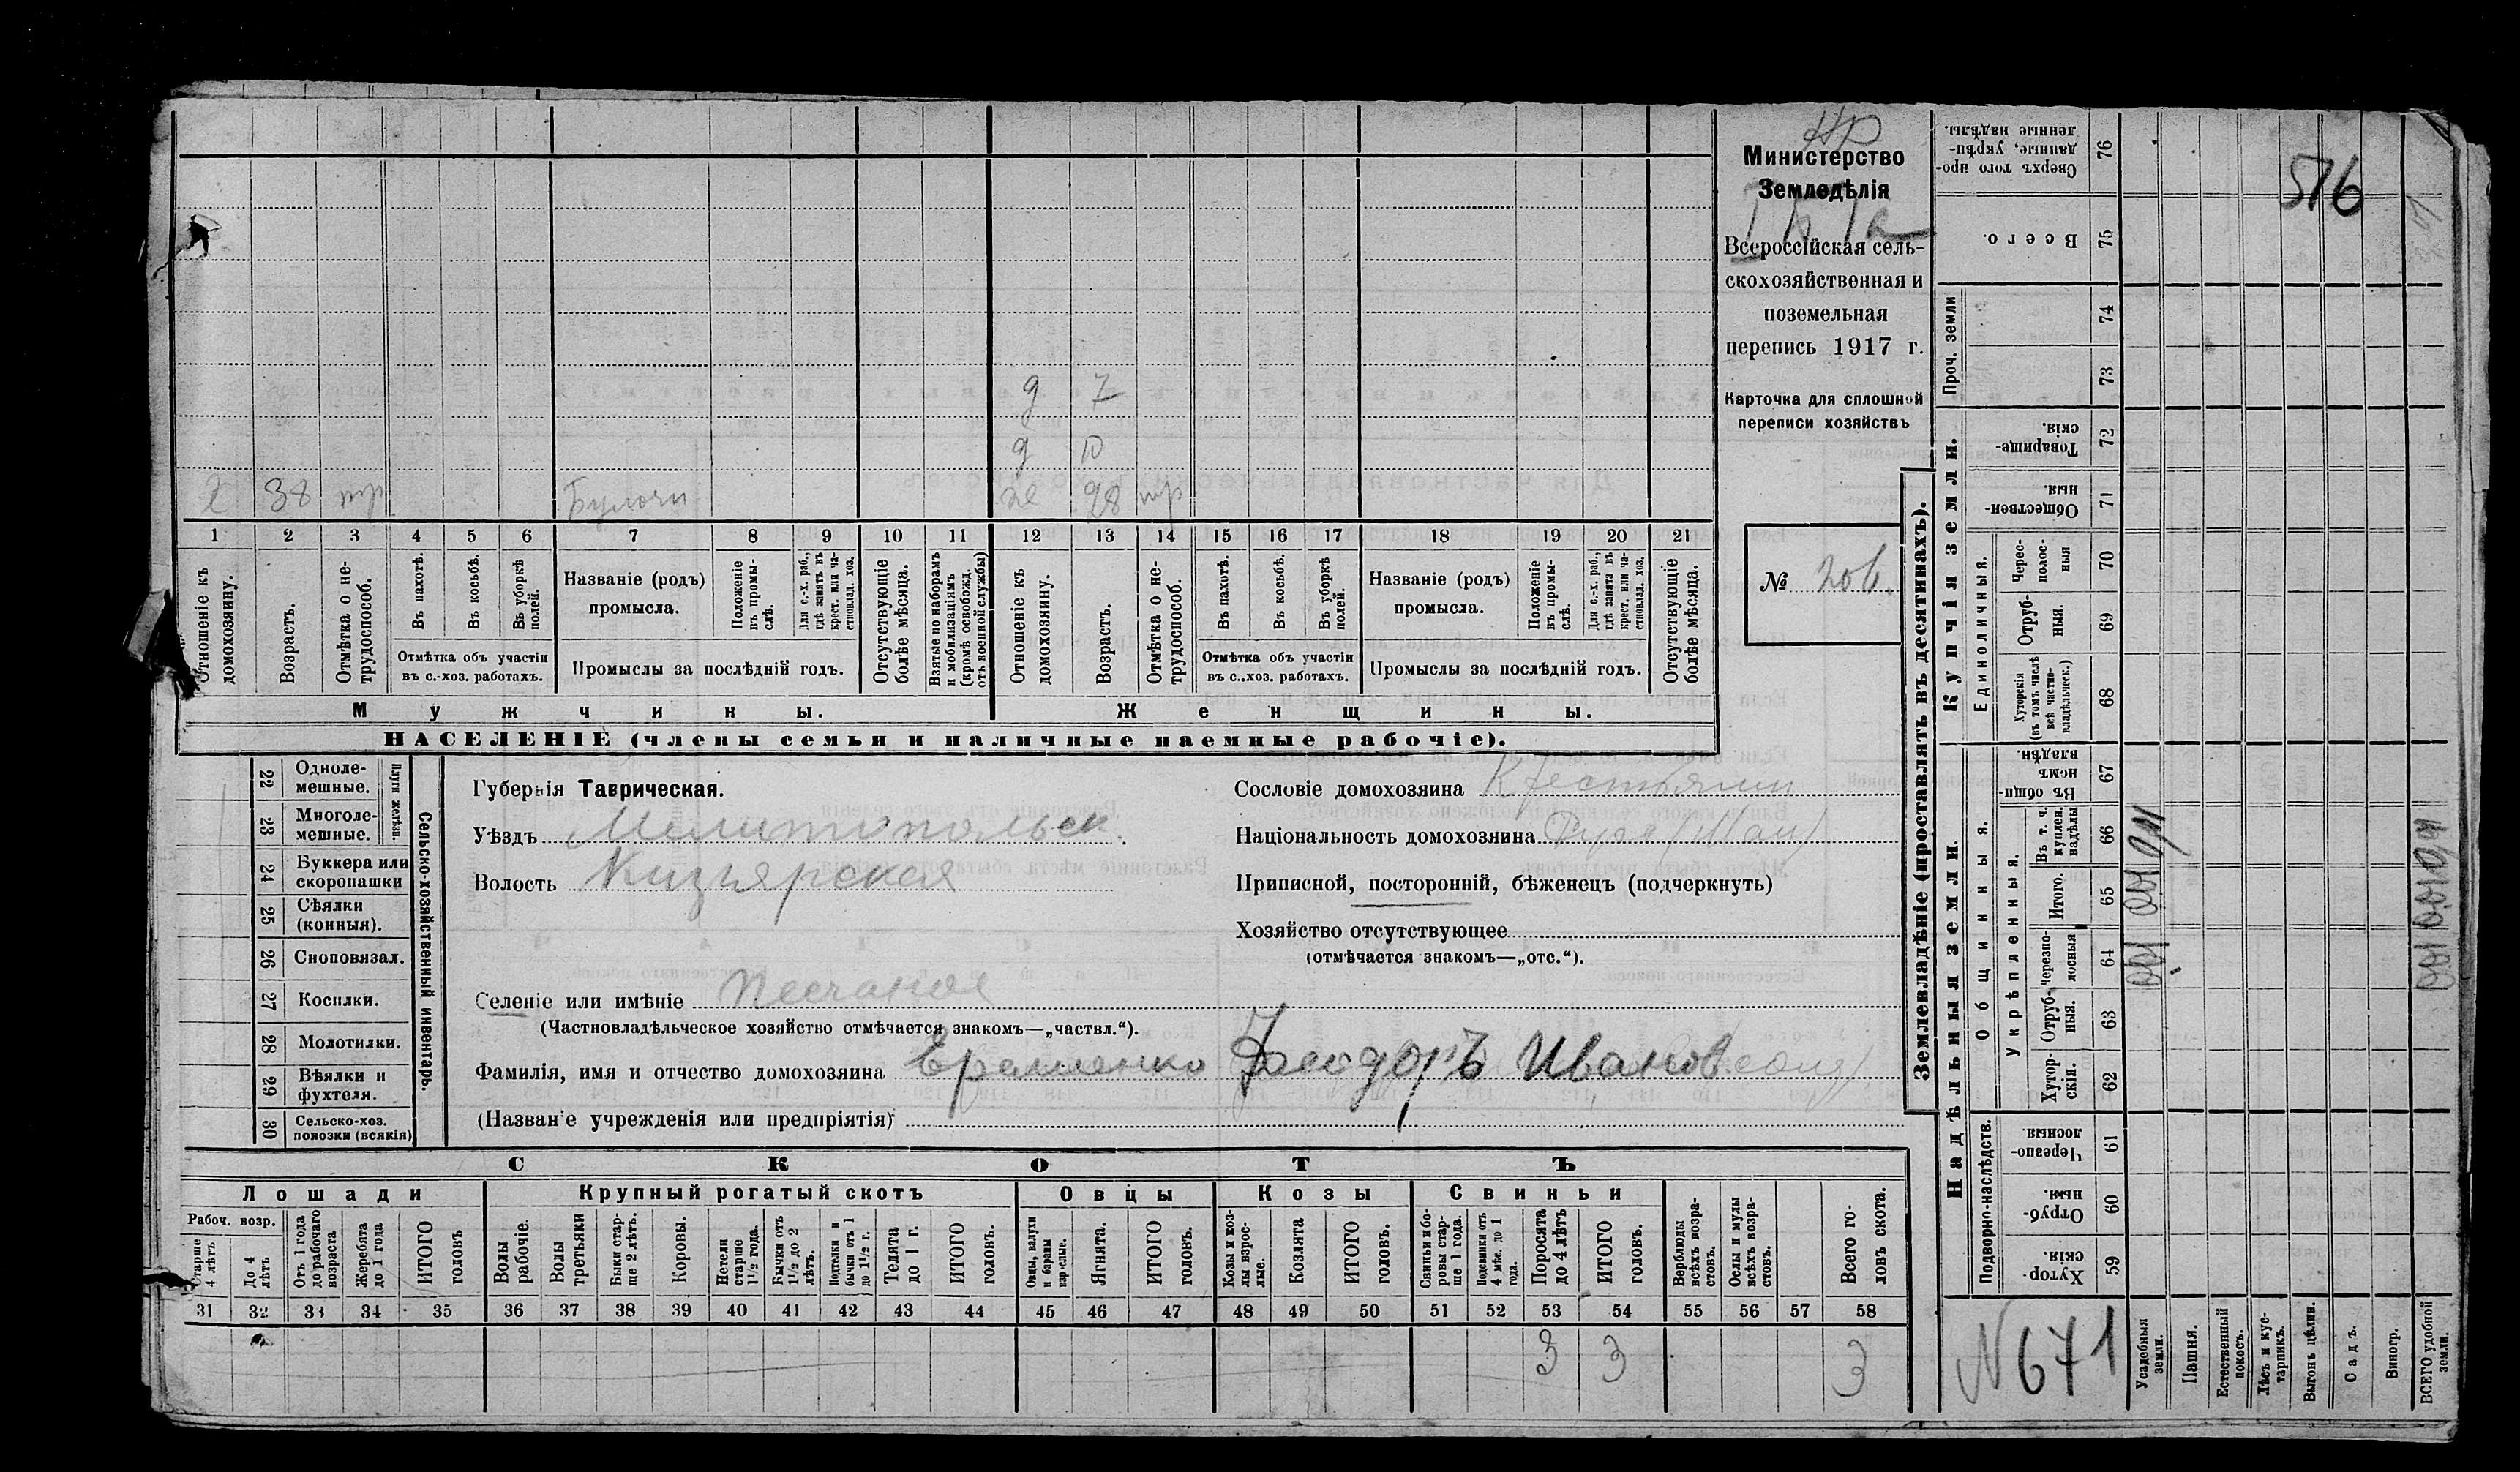 Министерство
Земледѣлія
Всероссійская сель-
скохозяйственная и
поземельная
перепись 1917 г.
Карточка для сплошной
переписи хозяйствъ
№ 206.
576
д 7
д 10
х 38 нтр Булочн
ж 28 нтр
1 2 3 4 5 6 7 8 9 10 11 12 13 14 15 16 17 18 19 20 21
Отношеніе къ домохозяину.
Возрастъ.
Отмѣтка о не-трудоспособ.
Въ пахотѣ.
Въ косьбѣ.
Въ уборкѣ полей.
Отмѣтка объ участіи въ с.-хоз. работахъ.
Названіе (родъ) промысла.
Положеніе въ промы-слѣ.
Для с.-х. раб., гдѣ занятъ въ крест. или ча-стновлад. хоз.
Промыслы за послѣдній годъ.
Отсутствующіе болѣе мѣсяца.
Взятые по наборамъ и мобилизаціямъ (кромѣ освобожд. отъ военной службы)
Отношеніе къ домохозяину.
Возрастъ.
Отмѣтка о не-трудоспособ.
Въ пахотѣ.
Въ косьбѣ.
Въ уборкѣ полей.
Отмѣтка объ участіи въ с.-хоз. работахъ.
Названіе (родъ) промысла.
Положеніе въ промы-слѣ.
Для с.-х. раб., гдѣ занята въ крест. или ча-стновлад. хоз.
Промыслы за послѣдній годъ.
Отсутствующіе болѣе мѣсяца.
Мужчины.
Женщины.
НАСЕЛЕНІЕ (члены семьи и наличные наемные рабочіе).
22 Одноле-мешные.
23 Многоле-мешные.
Плуги желѣзн
24 Буккера или скоропашки
25 Сѣялки (конныя).
26 Сноповязал.
27 Косилки.
28 Молотилки.
29 Вѣялки и фухтеля.
30 Сельско-хоз. повозки (всякія)
Сельско-хозяйственный инвентарь.
Губернія Таврическая.
Уѣздъ Мелитопольск.
Волость Кизіярская
Селеніе или имѣніе Песчаное
(Частновладѣльческое хозяйство отмѣчается знакомъ—„частвл.“).
Фамилія, имя и отчество домохозяина Еременко Феодоръ Иванов.
(Названіе учрежденія или предпріятія)
Сословіе домохозяина Крестьянин
Національность домохозяина
Приписной, посторонній, бѣженецъ (подчеркнуть)
Хозяйство отсутствующее
(отмѣчается знакомъ—„отс.“).
СКОТЪ
Лошади
Крупный рогатый скотъ
Овцы
Козы
Свиньи
Рабоч. возр.
Старше 4 лѣтъ
До 4 лѣтъ
Отъ 1 года до рабочаго возраста
Жеребята до 1 года
ИТОГО головъ
Волы рабочіе.
Волы третьяки
Быки стар-ше 2 лѣтъ.
Коровы.
Нетели старше 1½ года.
Бычки отъ 1½ до 2 лѣтъ.
Подтелки и бычки отъ 1 до 1½ г.
Телята до 1 г.
ИТОГО головъ.
Овцы, валухи и бараны взрослые.
Ягнята.
ИТОГО головъ.
Козы и коз-лы взрос-лые.
Козлята
ИТОГО головъ.
Свиньи и бо-ровы стар-ше 1 года.
Подсвинки отъ 4 мѣс. до 1 года.
Поросята до 4 лѣтъ
ИТОГО головъ.
Верблюды всѣхъ возра-стовъ.
Ослы и мулы всѣхъ возра-стовъ.
Всего го-ловъ скота.
31 32 33 34 35 36 37 38 39 40 41 42 43 44 45 46 47 48 49 50 51 52 53 54 55 56 57 58
3 3 3
Землевладѣніе (проставлять въ десятинахъ).
Купчія земли.
Надѣльныя земли.
Сверхъ того про-данные, укрѣп-ленные надѣлы. 76
Всего. 75
Проч. земли 74
73
Товарище-скія. 72
Обществен-ныя. 71
Единоличныя.
Черес-полос-ныя 70
Отруб-ныя. 69
Хуторскія (въ томъ числѣ всѣ частно-владѣльческ.) 68
Общинныя.
Въ общи-номъ владѣн. 67
Укрѣпленныя.
Въ т. ч. куплен. надѣлы 66
Итого. 65
Черезпо-лосныя 64
Отруб-ныя. 63
Хутор-скія. 62
Подворно-наслѣдств.
Черезпо-лосныя. 61
Отруб-ныя. 60
Хутор-скія. 59
N 671
Усадебныя земли.
Пашня.
Естественный покосъ.
Лѣсъ и кус-тарникъ.
Выгонъ цѣлин.
Садъ.
Виногр.
ВСЕГО удобной земли.